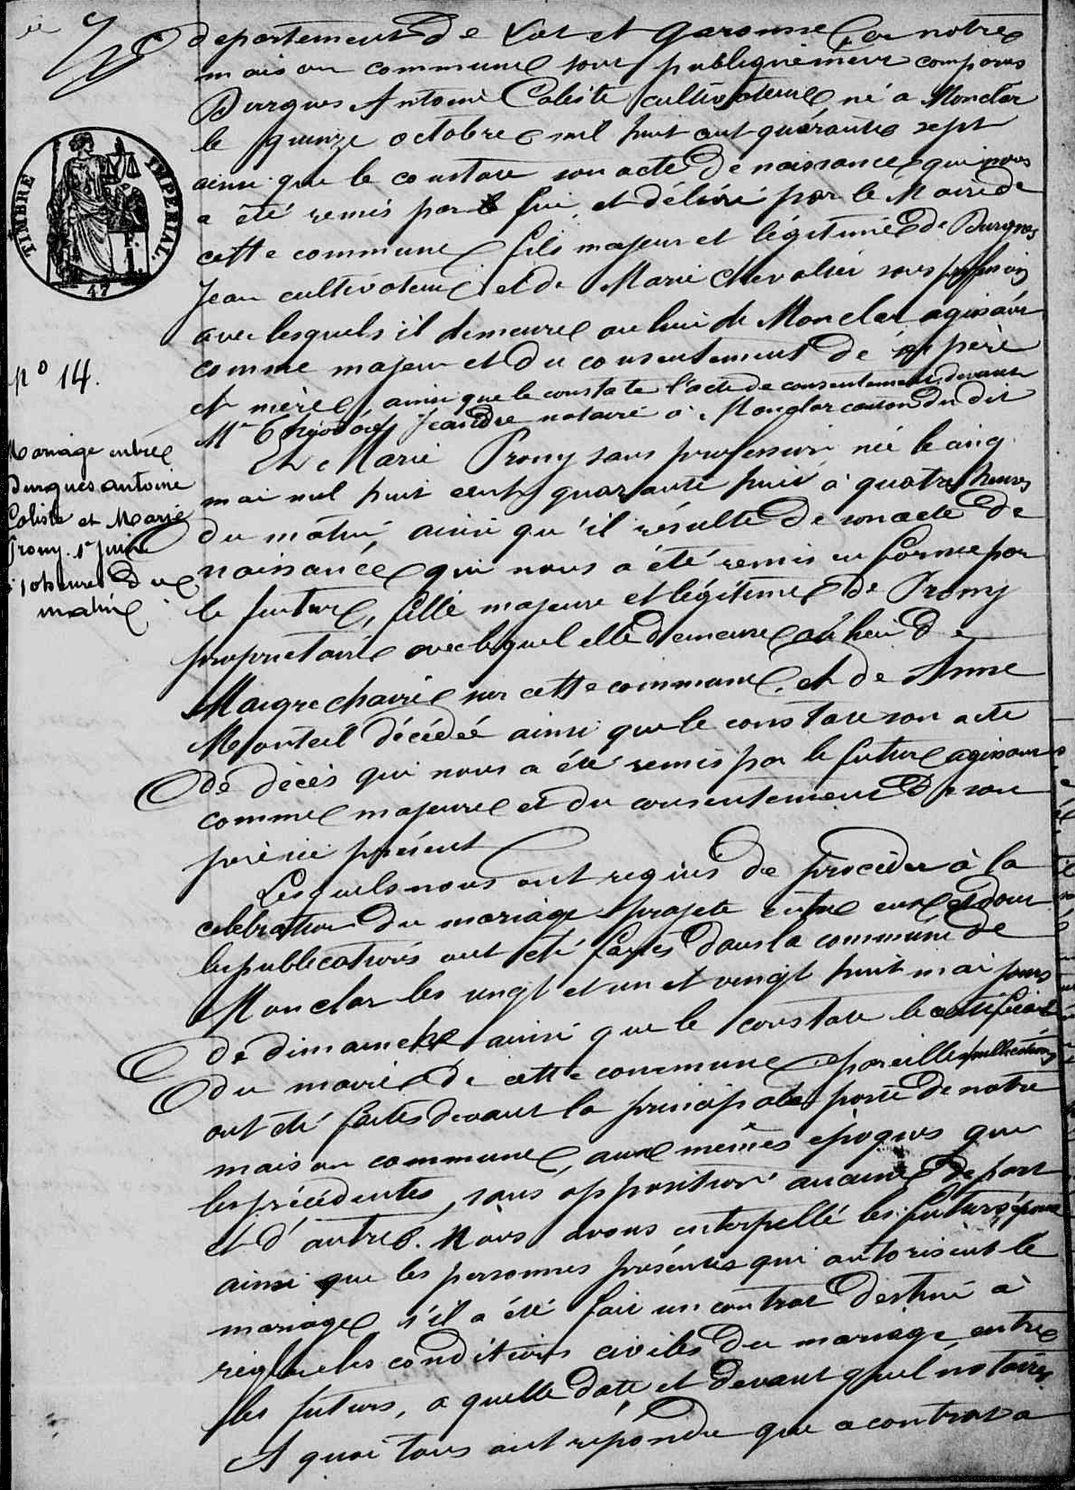 departement de Lot et Garonne, en notre
maison commune sont publiquement comparus
Durgues Antoine Caliste cultivateur né a Monclar
le quinze octobre mil huit cent quarante sept
ainsi que le constate son acte de naissance qui nous
a été remis par lui et délivré par le Maire de
cette commune fils majeur et légitime de Durgues
Jean cultivateur et de Marie Chevalier sans profession
avec lesquels il demeure au lieu de Monclar agissant
comme majeur et du consentement de ses père
et mère, ainsi que le constate l'acte de consentement devant
Me notaire à Monclar canton du dit
Et Marie Promy sans profession née le cinq
mai mil huit cent quarante huit à quatre heures
du matin ainsi qu'il résulte de son acte de
naissance qui nous a été remis en forme par
le futur, fille majeure et légitime de Promy
propriétaire avec lequel elle demeure au lieu de
Maigrechairie sur cette commune, et de Anne
Monteil décédée ainsi que le constate son acte
de décès qui nous a été remis par le future agissant
comme majeure et du consentement de son
père ici présent
Lesquels nous ont requis de procéder à la
celebration du mariage projete entre eux et dont
les publications ont été faites dans la commune de
Monclar les vingt et un et vingt huit mai jours
de dimanche ainsi que le constate le certificat
du maire de cette commune, pareilles publications
ont été faites devant la principale porte de notre
maison commune, aux mêmes epoques que
les précédentes, sans opposition aucune de part
et d'autre. Nous avons interpellé les futurs époux
ainsi que les personnes présentes qui autorisent le
mariage s'il a été fait un contrat destiné à
régler les conditions civiles du mariage entre
les futurs, a quelle date et devant quel notaire
A quoi tous ont répondu que a contrat a
TIMBRE IMPERIAL.
47
No 14.
Mariage entre
Durgues antoine
Caliste et Marie
Promy. 1er juin
à 10 heures du
matin